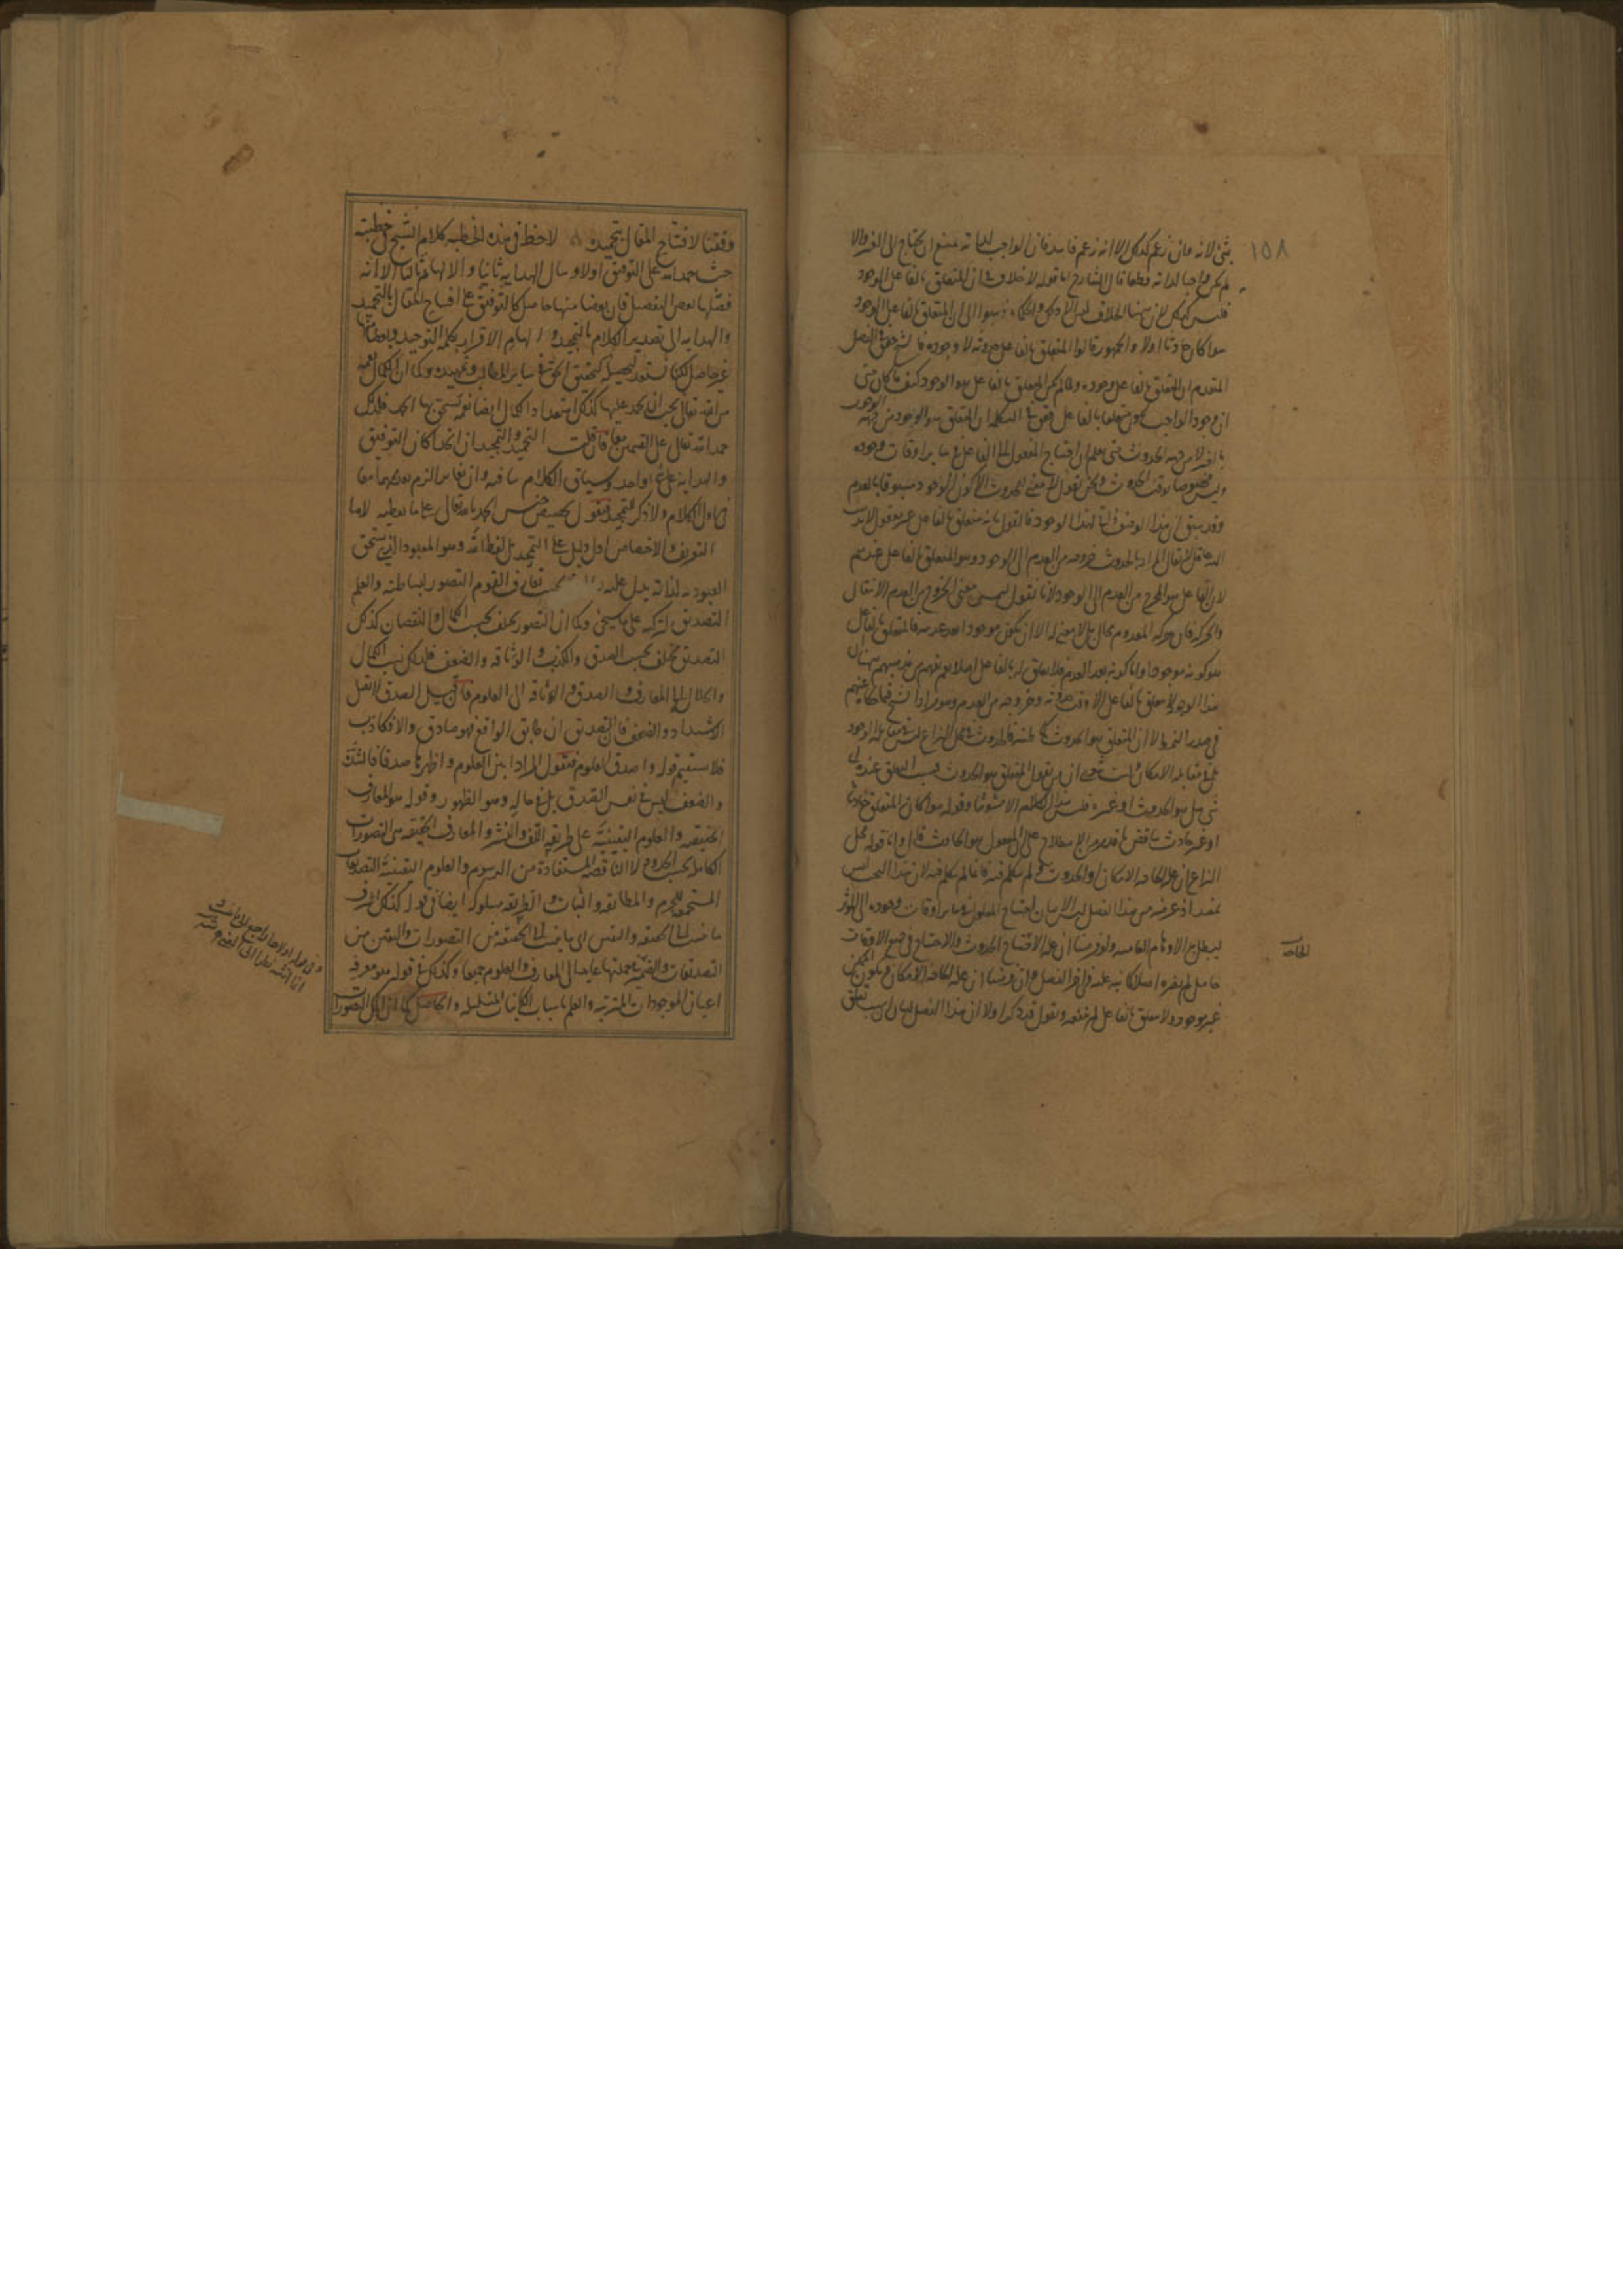 ١٥٨
بشئ لانه وان زعم كذلك الا انه زعم فاسد فان الواجب لذاته ممتنع ان يحتاج الى الغير والا
لم يكن واجبا لذاته مطلقا قال الشارح اما قوله لا خلاف في ان المتعلق بالفاعل الوجود
فليس كذلك لان ههنا الخلاف ليس الا وان الحكماء ذهبوا الى ان المتعلق بالفاعل الوجود
سواء كان حادثا اولا والجمهور قالوا المتعلق بالفاعل حدوثه لا وجوده فالشيخ حقق في الفصل
المتقدم ان المتعلق بالفاعل وجوده ولما لم يكن المتعلق بالفاعل هو الوجود كيف ما كان حتى
ان وجود الواجب يكون متعلقا بالفاعل فقوى في التكملة ان المتعلق هو الوجود من جهة الوجوب
بالغير لا من جهة الحدوث حتى يعلم ان احتياج المفعول الى الفاعل في سائر اوقات وجوده
وليس مخصوصا بوقت الحدوث ونحن نقول لا معنى للحدوث الا كون الوجود مسبوقا بالعدم
وقد سبق ان هذا الوصف ذاتي لهذا الوجود فالقول بانه متعلق بالفاعل غير معقول لا يد
لا يقال المراد بالحدوث خروجه من العدم الى الوجود وهو المتعلق بالفاعل عندهم
لان الفاعل هو المخرج من العدم الى الوجود لانا نقول ليس معنى الخروج من العدم الانتقال
والحركة فان حركة المعدوم محال بل لا معنى له الا ان يكون موجودا بعد عدمه فالمتعلق بالفاعل
هو كونه موجودا واما كونه بعد العدم فلا تعلق له بالفاعل اصلا نعم يفهم من مذهبهم ههنا ان
هذا الوجود لا يتعلق بالفاعل الا وقت حدوثه وخروجه من العدم وهو مراد الشيخ فيما حكاه عنهم
في صدر النمط لا ان المتعلق هو الحدوث كما ظنه فالحدوث في محل النزاع ليس في مقابله الوجود
بل في مقابله الامكان
شئ هل هو الحدوث او غيره فليس هذا الكلام الا مشوشا وقوله سواء كان المتعلق حادثا
او غير حادث يناقض ما قدمه من الاصطلاح على ان المفعول هو الحادث قال واما قوله محل
النزاع ان علة الحاجة الامكان او الحدوث فلم يتكلم فيه فانما لم يتكلم فيه لان هذا البحث ليس
بمفيد اذ غرضه من هذا الفصل ليس الا بيان احتياج المعلول في سائر اوقات وجوده الى المؤثر
ليبطل به الاوهام العامية ولو فرضنا ان علة الاحتياج الحدوث والاحتياج في جميع الاوقات
حاصل لم يضره اصلا كما نبه عليه في اخر الفصل وان فرضنا ان علة الحاجة الامكان ويكون الممكن
غير موجود ولا متعلق بالفاعل لم ينفعه ونقول قد ذكر اولا ان هذا الفصل لبيان ان سبب تعلق
الحاجة
وفقنا لافتتاح المقال بتحميده لاحظ في هذه الخطبة كلام الشيخ في خطبته
حيث حمد الله على التوفيق اولا وسال الهداية ثانيا والالهام ثالثا الا انه
فصلها بعض التفصيل فان بعضا منها حاصل كالتوفيق على افتتاح المقال بالتحميد
والهداية الى تصدير الكلام بالتمجيد والهام الاقرار بكلمة التوحيد وبعضها
غير حاصل لكنا نستعد لتحصيله كتحقيق الحق في سائر المطالب وتمهيده وكما ان الكمال نعمة
من الله تعالى يجب ان يحمد عليها كذلك استعداد الكمال ايضا نعمة يستحق بها الحمد فلذلك
حمد الله تعالى على القسمين معا فان قلت التحميد والتمجيد ان اتحدا كان التوفيق
والهداية على امر واحد وسياق الكلام ينافيه وان تغايرا لزم تصديرهما معا
في اول الكلام ولا ذكر للتمجيد فنقول تخصيص جنس الحمد بالله تعالى على ما يعطيه لاما
التعريف والاختصاص ادل دليل على التمجيد بل لفظ الله وهو المعبود الذي يستحق
العبودية لذاته يدل عليه تعارف القوم التصور لبساطته والعلم
التصديق لتركبه على ما سيجئ وكما ان التصور يختلف بحسب الكمال والنقصان كذلك
التصديق يختلف بحسب الصدق والكذب والوثاقة والضعف فلذلك نسب الكمال
والجلالة الى المعارف والصدق والوثاقة الى العلوم فان قيل الصدق لا يقبل
الاشتداد والضعف فان التصديق ان طابق الواقع فهو صادق والا فكاذب
فلا يستقيم قوله واصدق العلوم فنقول المراد ابين العلوم واظهرها صدقا فالشدة
والضعف ليس في نفس الصدق بل في حاله وهو الظهور وقوله هو المعارف
الحقيقية والعلوم اليقينية على طريقة اللف والنشر والمعارف الحقيقية هي التصورات
الكاملة بحسب الحدود لا الناقصة المستفادة من الرسوم والعلوم اليقينية التصديقات
المستجمعة للجزم والمطابقة والثبات والطريقة مسلوكة ايضا في قوله كذلك اشرف
ما ينسب الى الحقيقة واليقين اي ما ينسب الى الحقيقة من التصورات واليقين من
التصديقات والضمير في جملتها عائد الى المعارف والعلوم جميعا وكذلك في قوله هو معرفة
اعيان الموجودات المترتبة والعلم باسباب الكائنات المتسلسلة والحاصل كما ان اكمل التصورات